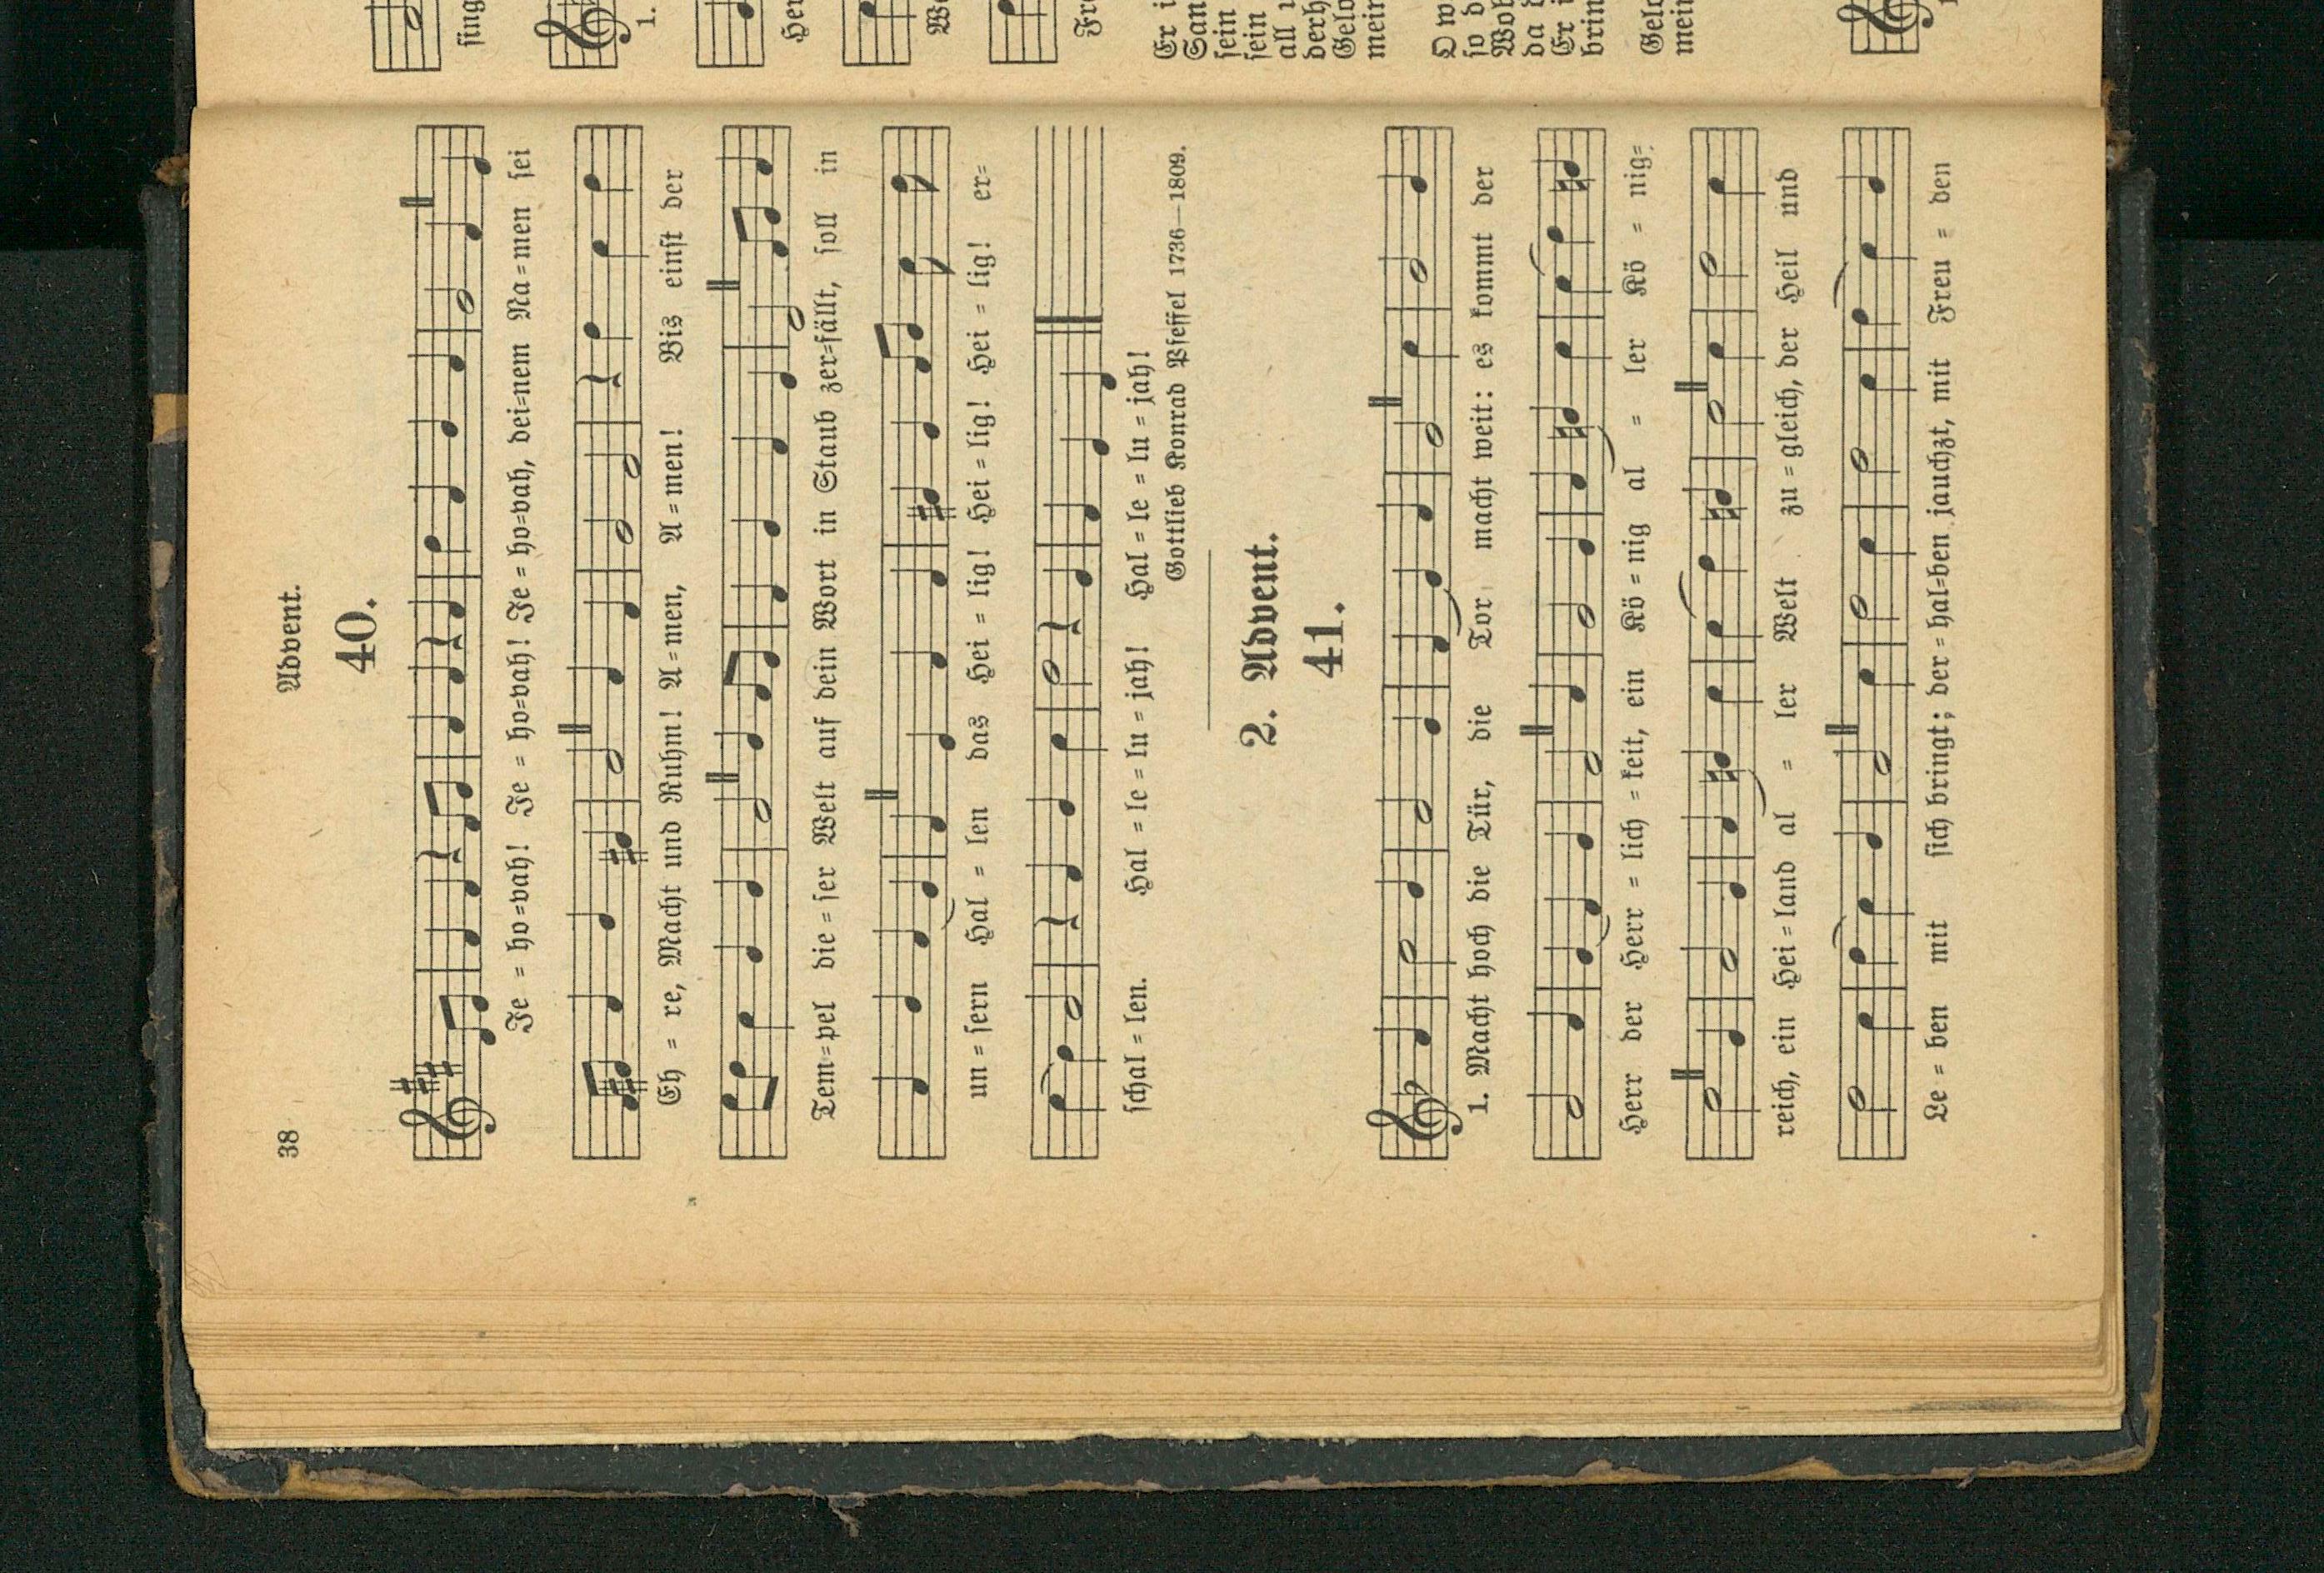 38
Advent.
40.
Je = ho=vah! Je = ho=vah! Je = ho=vah, dei=nem Na=men sei
Eh = re, Macht und Ruhm! A=men, A=men! Bis einst der
Tem=pel die=ser Welt auf dein Wort in Staub zer=fällt, soll in
un=sern Hal = len das Hei = lig! Hei = lig! Hei = lig! er=
schal = len. Hal = le = lu = jah! Hal = le = lu = jah!
Gottlieb Konrad Pfeffel 1736—1809.
2. Advent.
41.
1. Macht hoch die Tür, die Tor macht weit: es kommt der
Herr der Herr = lich = keit, ein Kö = nig al = ler Kö = nig=
reich, ein Hei = land al = ler Welt zu = gleich, der Heil und
Le = ben mit sich bringt; der = hal=ben jauchzt, mit Freu = den
sing
1.
Her
We
Fre
Er i
San
sein
sein
all u
derh
Gelo
mein
O w
so d
Woh
da d
Er i
brin
Gelo
mein